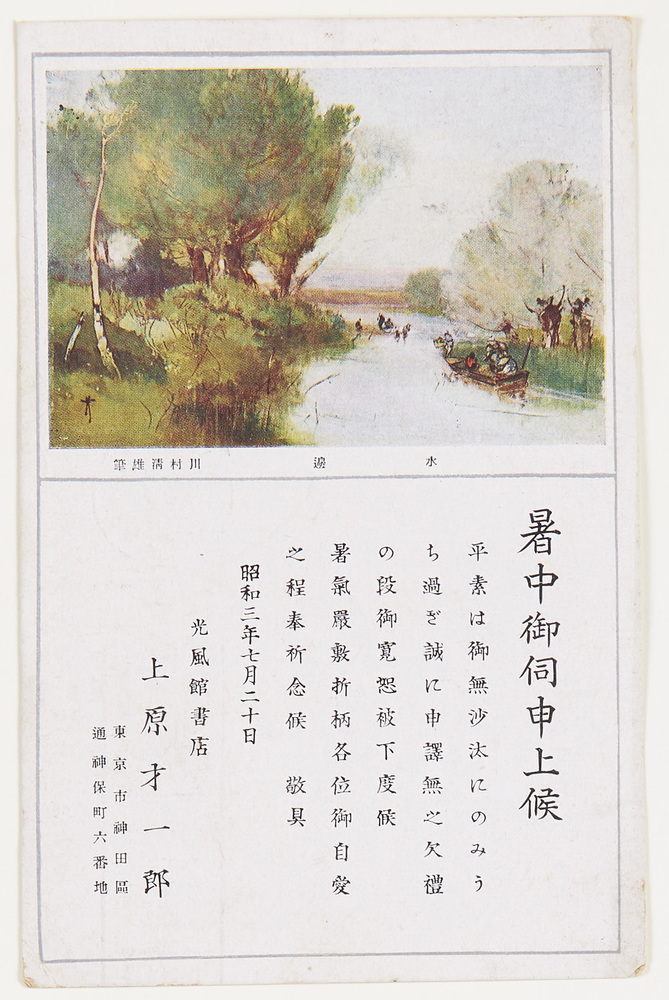 水邊　川村清雄筆
暑中御伺申上候
平素は御無沙汰にのみう
ち過ぎ誠に申譯無之欠禮
の段御寛恕被下度候
暑氣嚴敷折柄各位御自愛
之程奉祈念候　敬具
昭和三年七月二十日
光風館書店
上原才一郎
東京市神田區
通神保町六番地